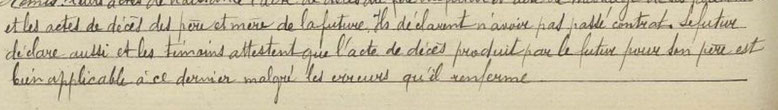 et les actes de décès des père et mère de la future. Ils déclarent n'avoir pas passé contrat. Le futur
déclare aussi et les témoins attestent que l'acte de décès produit par le futur pour son père est
bien applicable à ce dernier malgré les erreurs qu'il renferme